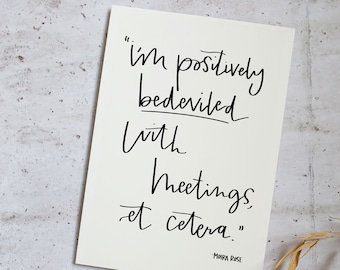 "i'm positively
bedeviled
with
meetings,
et cetera."
-MOIRA ROSE